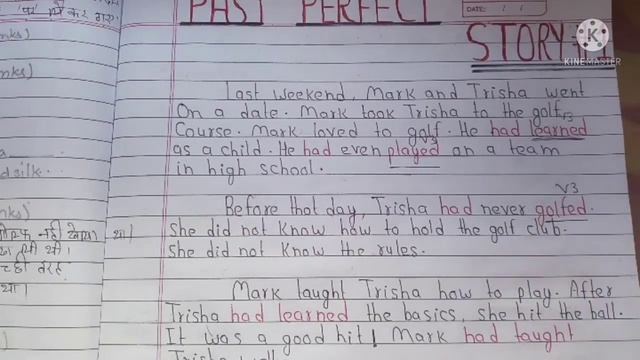 PAST PERFECT
DATE: / /
STORY #1
KINEMASTER
nks)
Last weekend, Mark and Trisha went
On a date. Mark took Trisha to the golf
V3
Course. Mark loved to golf. He had learned
V3
as a child. He had even played on a team
in high school.
V3
Before that day, Trisha had never golfed.
She did not know how to hold the golf club.
She did not know the rules.
Mark taught Trisha how to play. After
Trisha had learned the basics, she hit the ball.
It was a good hit! Mark had taught
nks)
d silk.
nks)
था।
था।